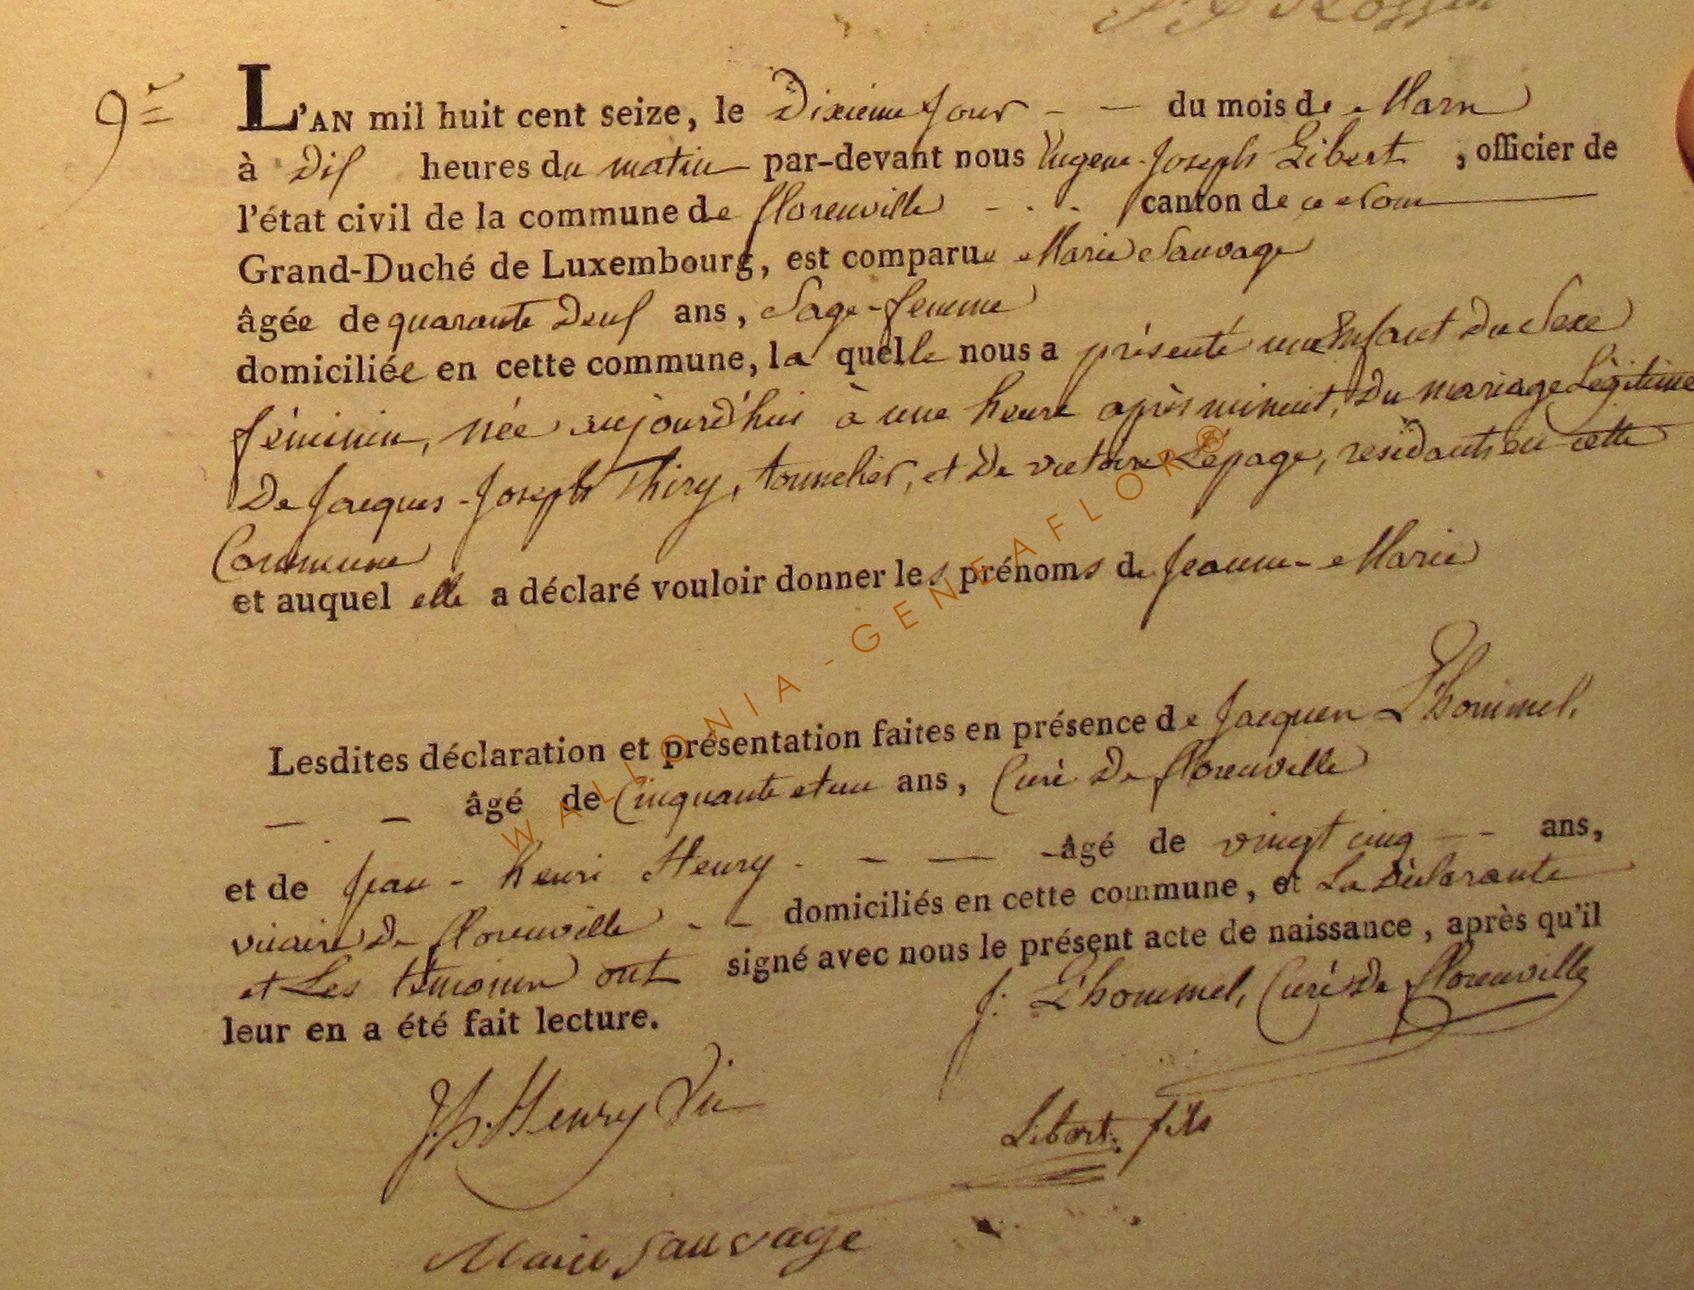 9e
L'AN mil huit cent seize, le Dixieme Jour - - du mois de Mars
à Dix heures du matin par-devant nous Eugene-Joseph Libert , officier de
l'état civil de la commune de florenville - - - canton de ce nom
Grand-Duché de Luxembourg, est comparue Marie Sauvage
âgée de quarante Deux ans, Sage-femme
domiciliée en cette commune, la quelle nous a présenté une Enfant Du Sexe
féminin, née aujourd'hui à une heure après minuit, Du mariage Légitime
De Jacques-Joseph Thiry, tonnelier, et De victoire Lepage, residants en cette
Commune
et auquel elle a déclaré vouloir donner les prénoms de Jeanne-Marie
Lesdites déclaration et présentation faites en présence de Jacques L'hommel,
- - âgé de Cinquante et un ans, Curé De florenville
et de Jean-henri Henry - - - - âgé de vingt cinq - - ans,
vicaire De florenville - - domiciliés en cette commune, et La Déclarante
et Les témoins ont signé avec nous le présent acte de naissance, après qu'il
leur en a été fait lecture.
J: L'hommel, Curé De florenville
J.h. Henry Vic
Libert fils
Marie Sauvage
WALLONIA-GENEAFLOR®